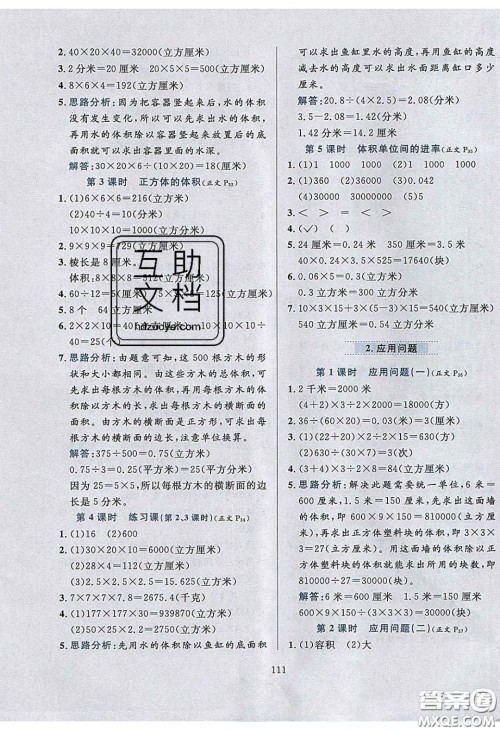 2. 40×20×40=32000(立方厘米)
3. 2分米=20厘米 20×5×5=500(立方厘米)
4. 8×6×4=192(立方厘米)
5. 思路分析：因为把容器竖起来后，水的体积
没有发生变化，所以可以先求出水的体积，
再用水的体积除以容器竖起来放置后的底
面积就可以求出水面的高度。
解答：30×20×6÷(10×20)=18(厘米)
第3课时 正方体的体积(正文P33)
1. (1)6×6×6=216(立方厘米)
(2)40÷4=10(厘米)
10×10×10=1000(立方厘米)
2. 9×9×9=729(立方厘米)
3. 棱长是8厘米。
体积：8×8×8=512(立方厘米)
4. 60÷12=5(厘米)
5. 8个 64立方厘米
6. 2×2×10=40(立方厘米)
÷40=25(个)
7. 思路分析：由题意可知，这500根方木的形
状和大小都相同。由这些方木的总体积，可
先求出每根方木的体积，再用每根方木的体
积除以方木的长，求出每根方木的横断面的
面积。因为方木的横断面是正方形，所以由
每根方木的横断面的面积可求出横断面的
边长。解答时注意单位换算。
解答：375÷500=0.75(立方米)
0.75÷3=0.25(平方米)=25(平方分米)
因为25=5×5，所以每根方木的横断面的边
长是5分米。
第4课时 练习课(第2、3课时)(正文P34)
1. (1)16 (2)600
2. (1)30×20×10=6000(立方厘米)
(2)2.5×2.5×2.5=15.625(立方分米)
3. 7×7×7×7.8=2675.4(千克)
4. (1)177×177×30=939870(立方米)
(2)50×50×30=75000(立方米)
5. 思路分析：先用水的体积除以鱼缸的底面积
可以求出鱼缸里水的高度，再用鱼缸的高度
减去水的高度可以求出水面距离缸口多少
厘米。
解答：20.8÷(4×2.5)=2.08(分米)
3.5-2.08=1.42(分米)
1.42分米=14.2厘米
第5课时 体积单位间的进率(正文P35)
1. (1)5 1000 1000 1000
(2)360000 (3)40000
3. < > = <
4. (√) (√)
5. 24厘米=0.24米 350厘米=3.5米
6. 0.06×5=0.3(立方米)
0.3立方米=300立方分米
7. 10×3×15+3×3×10=540(立方分米)
540立方分米=0.54立方米
2. 应用问题
第1课时 应用问题(一)(正文P36)
1. 2千米=2000米
(4+2)×3÷2×2000=18000(立方米)
2. 36÷(60÷10)÷2=3(厘米)
3. (1)(22+20)×2÷2×15=630(方)
(2)630÷10=63(次)
4. (3+4)×3÷2×8=84(立方厘米)
5. 思路分析：解决此题需要统一单位，6米=
600厘米，1.5米=150厘米。先求出这面墙
的体积，即600×9×150=810000(立方厘
米)，再求出正方体塑料块的体积，即3×
3×3=27(立方厘米)。用这面墙的体积除以
正方体塑料块的体积就能求出所用的塑料
块的块数。
解答：6米=600厘米 1.5米=150厘米
600×9×150÷(3×3×3)=30000(块)
第2课时 应用问题(二)(正文P37)
1. (1)容积 (2)大
111
互助
文档
hdzuoye.com
答案圈
MXQE.COM